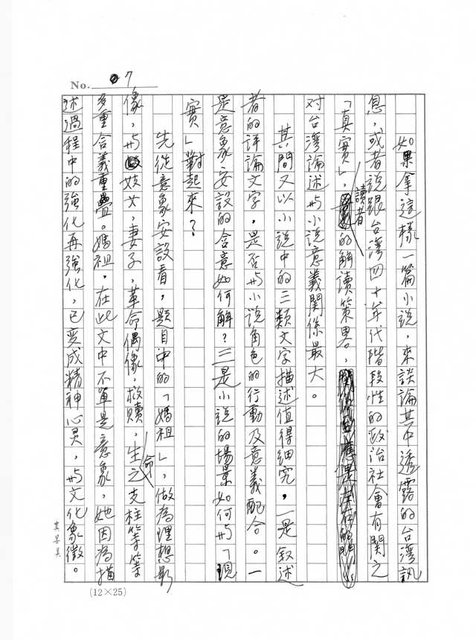 No. 7
如果拿這樣一篇小說,來談論其中透露的台灣訊
息,或者說跟台灣四十年代階段性的政治社會有關之
「真實」,讀者的解讀策略,
对台灣論述与小說意義関係最大。
其間又以小說中的三類文字描述值得細究,一是敘述
者的評論文字,是否与小說角色的行動及意義配合。一
是意象安設的含意如何解?三是小說的場景如何与「現
實」對起來?
先從意象安設看,題目中的「媽祖」,做為理想影
像,与妓女,妻子,革命偶像,救贖,生命之支柱等等
多重合義重疊。媽祖,在此文中不單是意象,她因為描
述過程中的強化再強化,已变成精神心灵,与文化象徵。
(12×25)